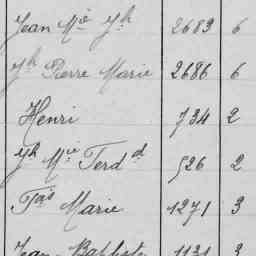 Jean Mie Jh 2683 6
Jh Pierre Marie 2686 6
Henri 734 2
Jh Mie Ferdd 526 2
Fois Marie 1271 3
Jean Baptiste 1131 3